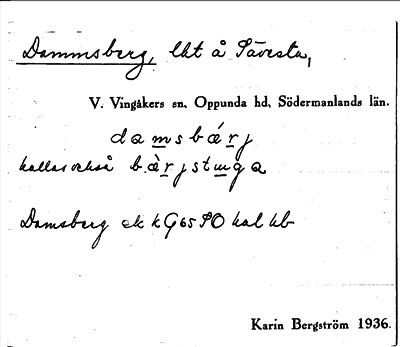 Dammsberg, lht å Sävsta,
V. Vingåkers sn, Oppunda hd, Södermanlands län.
damsbärj
kallas också bàrjstuga
Damsberg ek kG65SO hal hb
Karin Bergström 1936.